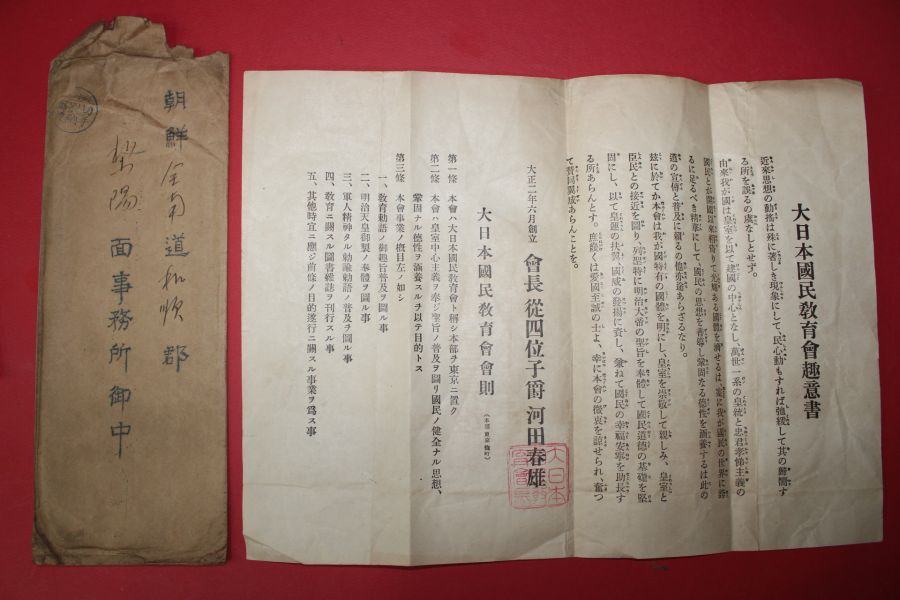 大日本國民敎育會趣意書
近來思想の動搖は殊に著しき現象にして、民心動もすれば弛緩して其の歸嚮す
る所を誤るの虞なしとせず。
由來我が國は皇室を以て建國の中心となし、萬世一系の皇統と忠君孝悌主義の
國民とが
るに足るべき精華にして、國民の思想を善導し鞏固なる德性を涵養するは此の
道の宣傳と普及に賴るの他亦途あらざるなり。
玆に於てか本會は我が國特有の國體を明にし、皇室を崇敬して親しみ、皇室と
臣民との接近を圖り、列聖特に明治大帝の聖旨を奉體して國民道德の基礎を堅
固にし、以て皇運の扶翼、國威の發揚に資し、兼ねて國民の幸福安寧を助長す
る所あらんとす。庶幾くは愛國至誠の士よ、幸に本會の微衷を諒せられ、奮つ
て賛同翼成あらんことを。
大正二年六月創立 會長 從四位子爵 河田春雄
大日本國民敎育會會則
第一條 本會ハ大日本國民敎育會ト稱シ本部ヲ東京ニ置ク
第二條 本會ハ皇室中心主義ヲ奉ジ聖旨ノ普及ヲ圖リ國民ノ健全ナル思想、
鞏固ナル德性ヲ涵養スルヲ以テ目的トス
第三條 本會事業ノ槪目左ノ如シ
一、敎育勅語ノ御趣旨普及ヲ圖ル事
二、明治天皇御製ノ奉體ヲ圖ル事
三、軍人精神タル勅諭勅語ノ普及ヲ圖ル事
四、敎育ニ關スル圖書雜誌ヲ刊行スル事
五、其他時宜ニ應ジ前條ノ目的遂行ニ關スル事業ヲ爲ス事
朝鮮全南道和順郡
面事務所御中